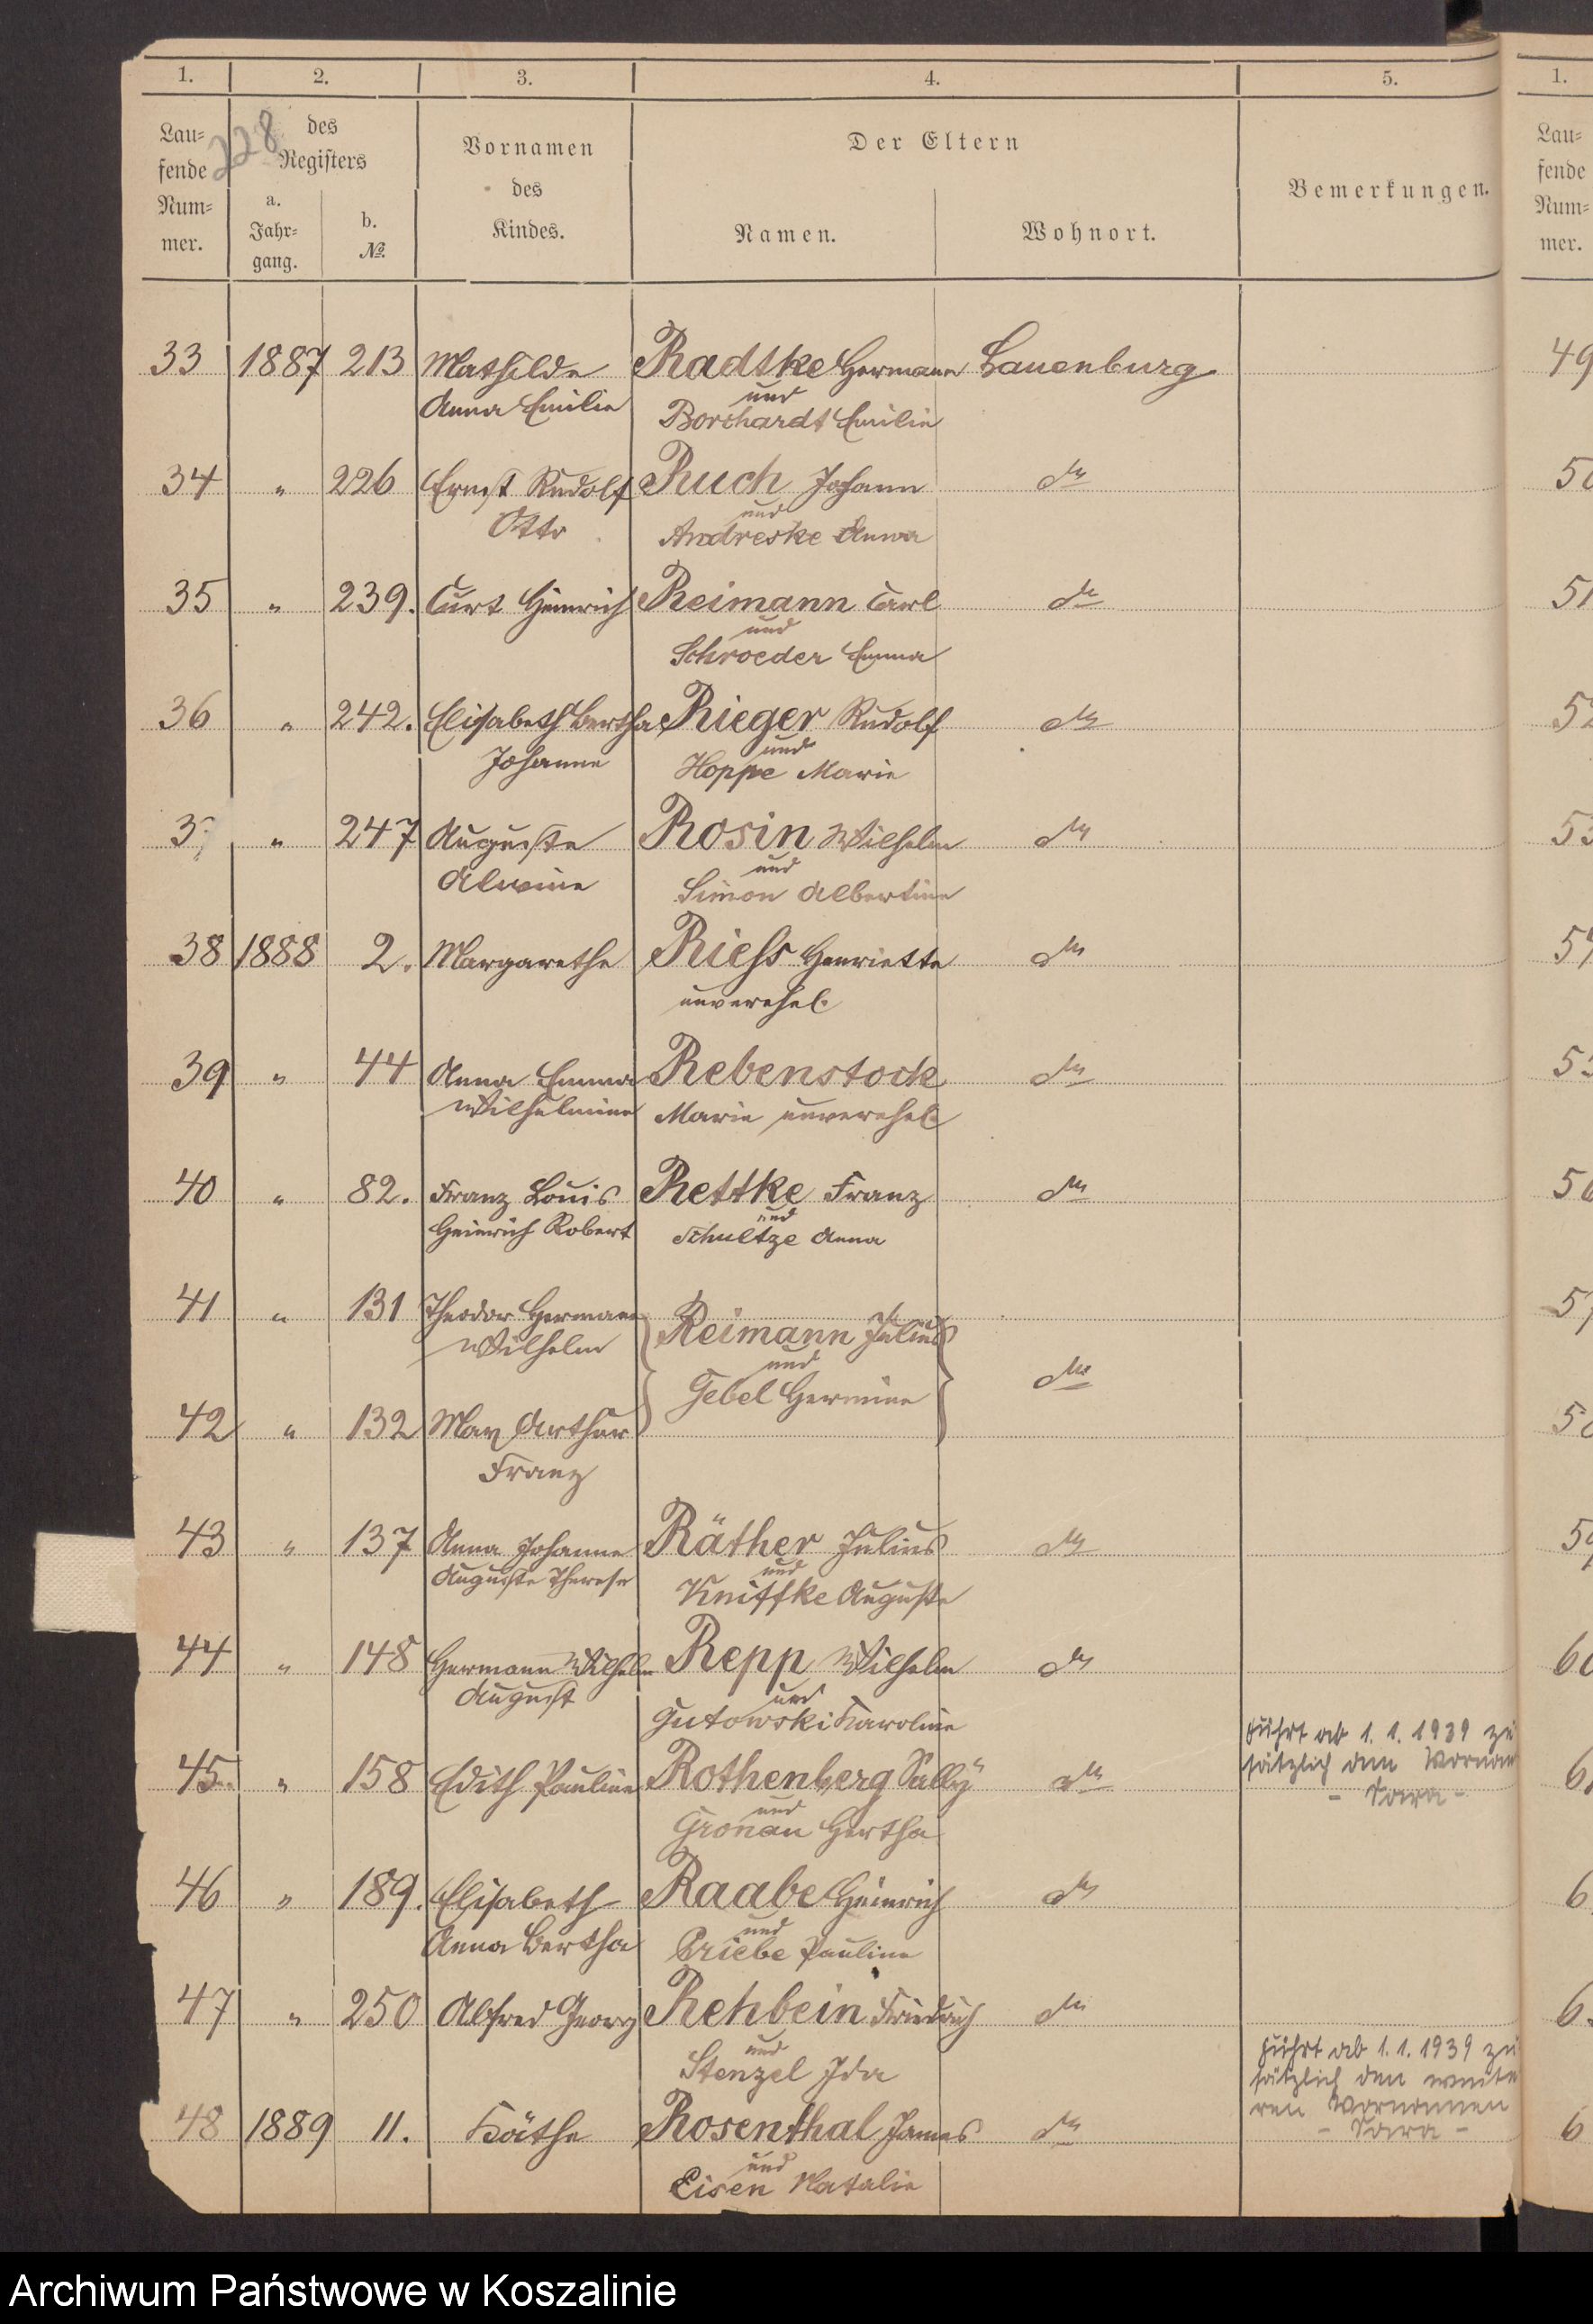 1. 2. 3. 4. 5. 1.
Lau=
fende
Num=
mer.
228
des
Registers
a.
Jahr=
gang.
b.
№.
Vornamen
des
Kindes.
Der Eltern
Namen. Wohnort.
Bemerkungen.
Lau=
fende
Num=
mer.
33 1887 213 Mathilde Radtke Hermann Lauenburg 49
und
Anna Emilie Borchardt Emilie
34 " 226 Ernst Rudolf Ruch Johann do
und
Otto Andreske Anna
35 " 239. Curt Heinrich Reimann Carl do 51
und
Schroeder Emma
36 " 242. Elisabeth Bertha Rieger Rudolf do
und
Johanne Hoppe Marie
37 " 247 Auguste Rosin Wilhelm do
und
Alwine Simon Albertine
38 1888 2. Margarethe Riess Henriette do
unverehel.
39 " 44 Anna Emma Rebenstock do
Wilhelmine Marie unverehel.
40 " 82. Franz Louis Rettke Franz do
und
Heinrich Robert Schultze Anna
41 " 131 Theodor Hermann
Wilhelm Reimann Julius
und do
Gebel Hermine
42 " 132 Max Arthur
Franz
43 " 137 Anna Johanne Räther Julius do
und
Auguste Therese Kniffke Auguste
44 " 148 Hermann Wilhelm Repp Wilhelm do
und
August Gutowski Karoline
führt ab 1. 1. 1939 zu
sätzlich den Vornam
- Sara -
45. " 158 Edith Pauline Rothenberg Sally do
und
Gronau Hertha
46 " 189. Elisabeth Raabe Heinrich do
und
Anna Bertha Priebe Pauline
47 " 250 Alfred Georg Rehbein Friedrich do
und
Stenzel Ida
führt ab 1. 1. 1939 zu
sätzlich den weite
ren Vornamen
- Sara -
48 1889 11. Käthe Rosenthal James do
und
Eisen Natalie
Archiwum Państwowe w Koszalinie